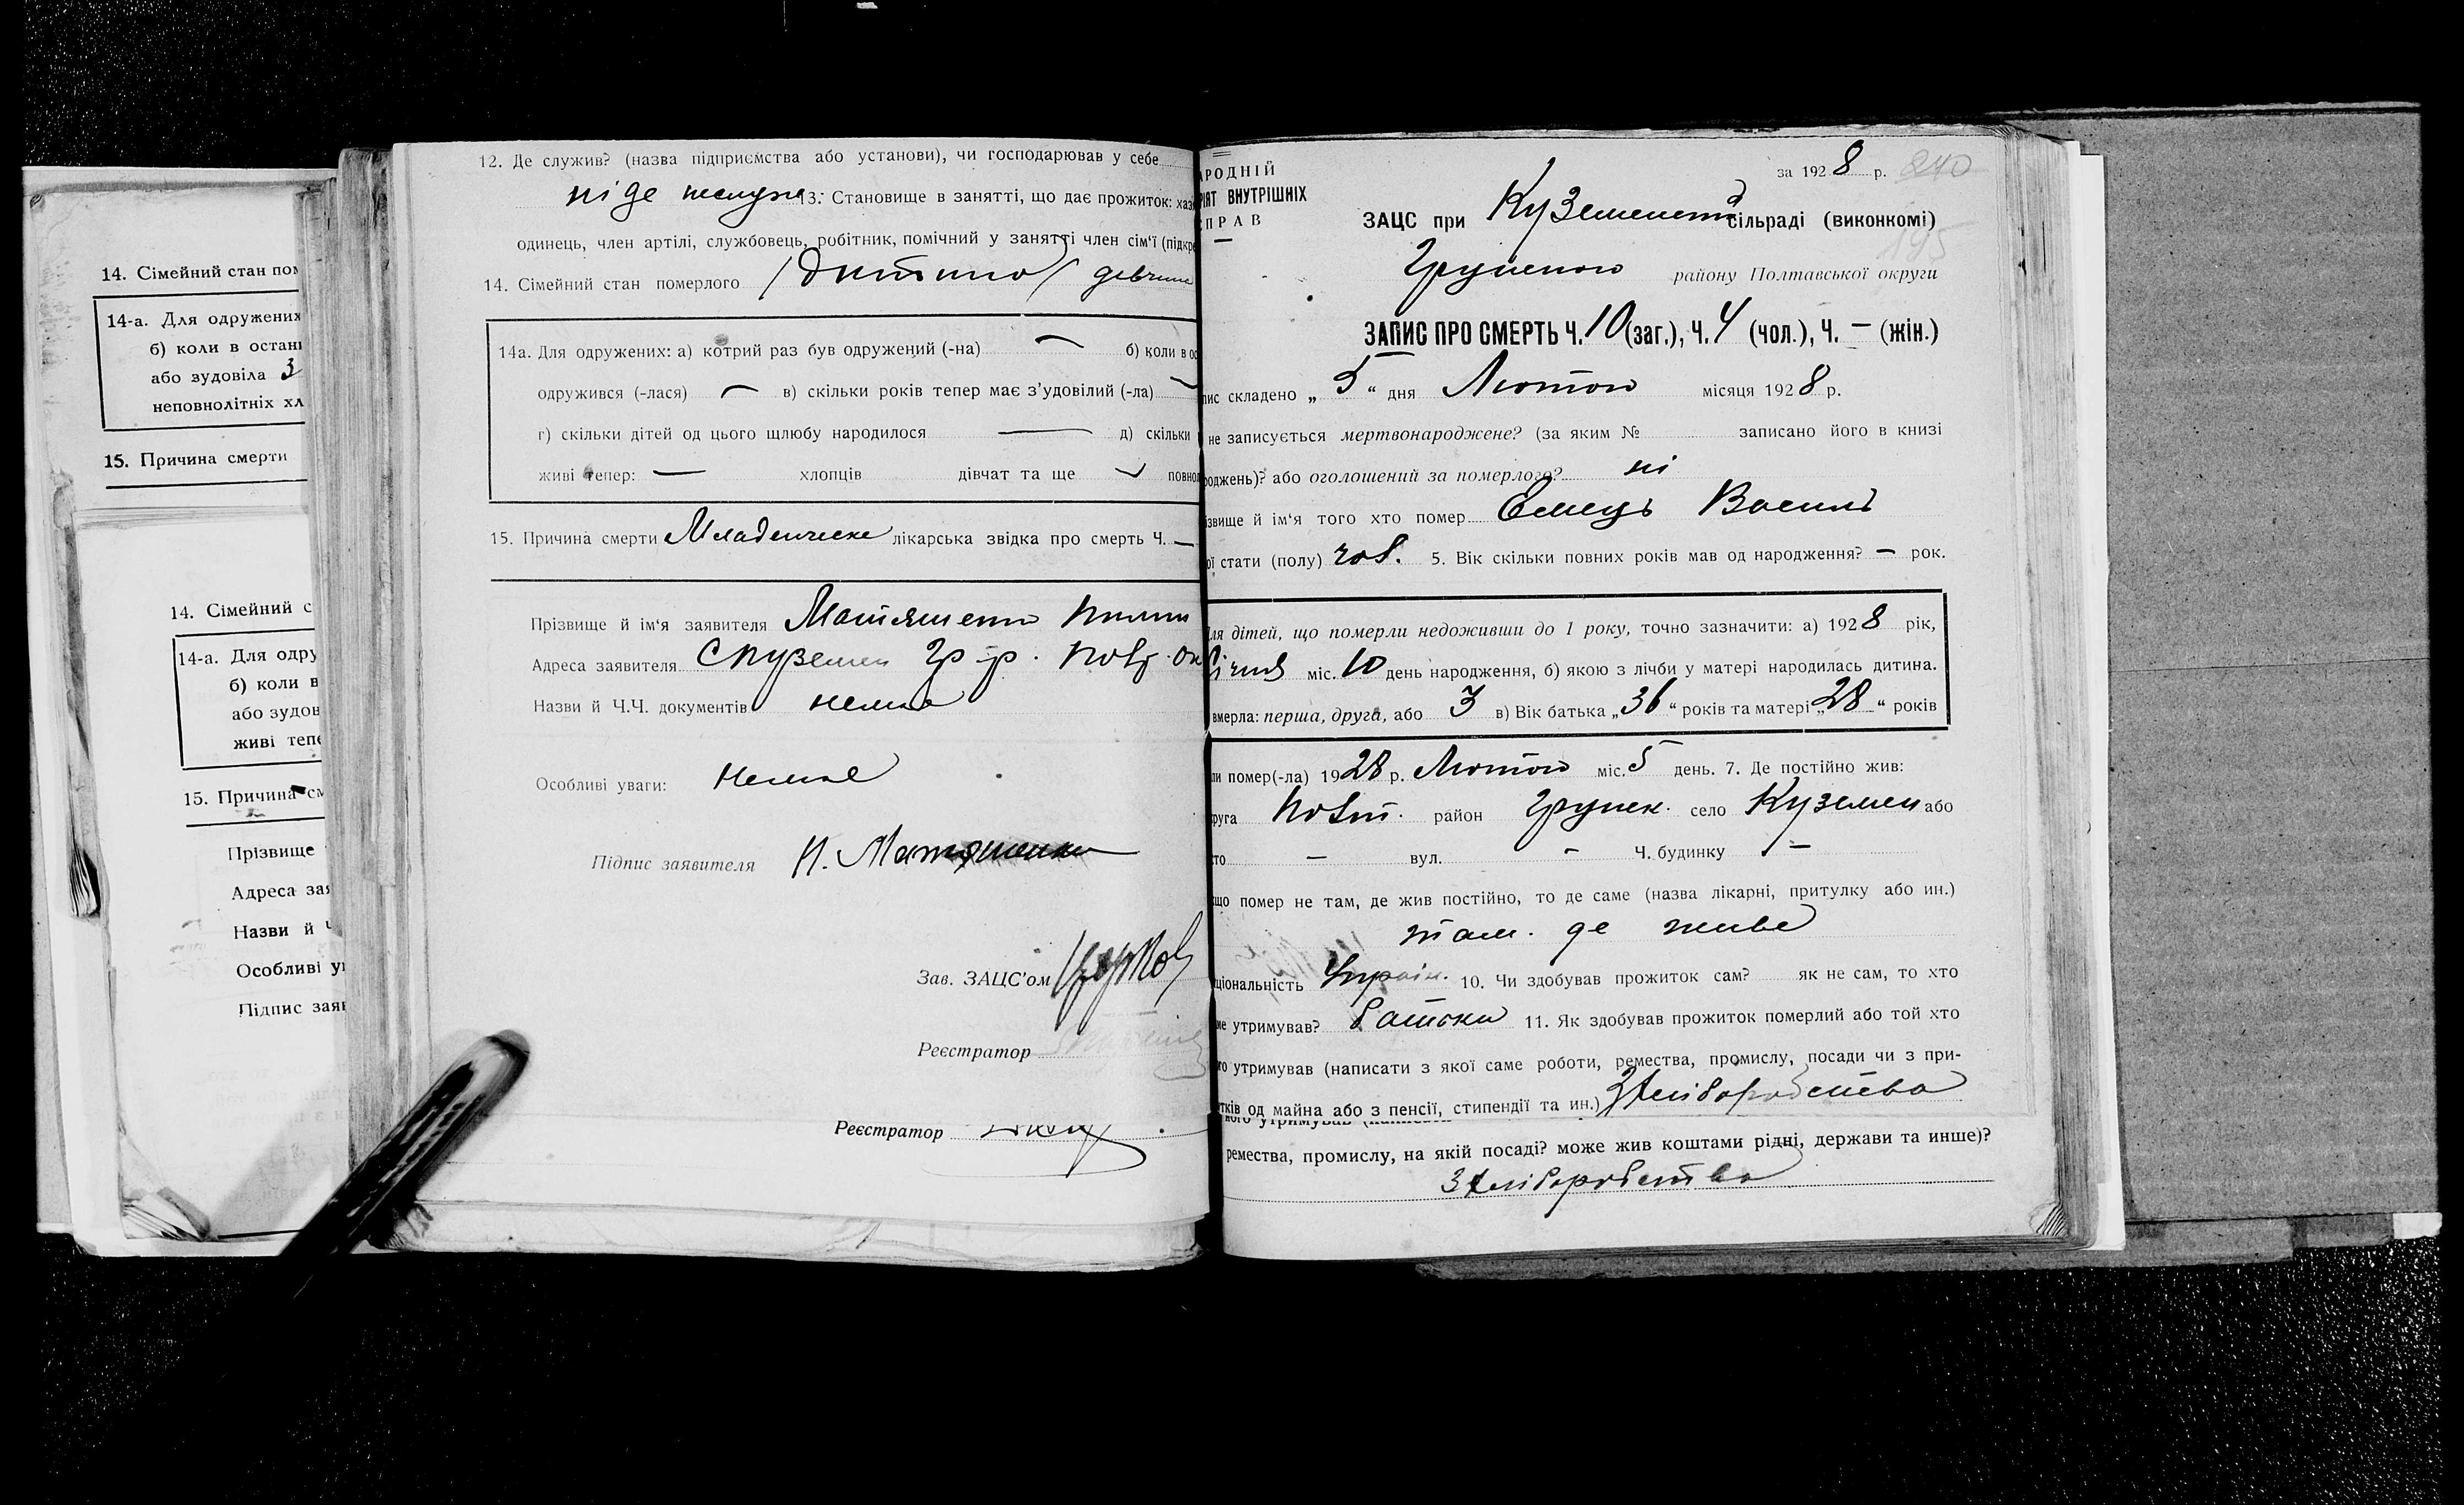 14. Сімейний стан пом
14-а. Для одружених
б) коли в остан
або зудовіла 3
неповнолітніх хл
15. Причина смерти
14. Сімейний с
14-а. Для одру
б) коли в
або зудов
живі тепе
15. Причина см
Прізвище
Адреса зая
Назви й Ч
Особливі ув
Підпис заяв
12. Де служив? (назва підприємства або установи), чи господарював у себе
ніде 13. Становище в занятті, що дає прожиток: хаз
одинець, член артілі, службовець, робітник, помічний у занятті член сім'ї (підкре
14. Сімейний стан померлого (дитина)
14а. Для одружених: а) котрий раз був одружений (-на) — б) коли в ос
одружився (-лася) — в) скільки років тепер має з'удовілий (-ла)
г) скільки дітей од цього щлюбу народилося — д) скільки
живі тепер: — хлопців дівчат та ще повнол
15. Причина смерти Младенческе лікарська звідка про смерть Ч. —
Прізвище й ім'я заявителя Матяшенко
Адреса заявителя Гр р. Полт. Ок
Назви й Ч.Ч. документів немає
Особливі уваги: немає
Підпис заявителя Н. Матяшенко
Зав. ЗАЦС'ом
Реєстратор
Реєстратор
АРОДНІЙ
РІЯТ ВНУТРІШНІХ
СПРАВ
за 1928 р. 240
ЗАЦС при Куземенській сільраді (виконкомі)
195
Грунського району Полтавської округи
ЗАПИС ПРО СМЕРТЬ Ч. 10 (заг.), Ч. 4 (чол.), Ч. — (жін.)
пис складено „ 5 “ дня Лютого місяця 1928 р.
не записується мертвонароджене? (за яким № записано його в книзі
роджень)? або оголошений за померлого? ні
ізвище й ім'я того хто помер Ємець Василь
ої стати (полу) чов. 5. Вік скільки повних років мав од народження? — рок.
Для дітей, що померли недоживши до 1 року, точно зазначити: а) 1928 рік,
Січня міс. 10 день народження, б) якою з лічби у матері народилась дитина.
вмерла: перша, друга, або 3 в) Вік батька „36“ років та матері „28“ років
ли помер(-ла) 1928 р. Лютого міс. 5 день. 7. Де постійно жив:
руга Полт. район Грунск. село Куземен або
сто — вул. — Ч. будинку —
що помер не там, де жив постійно, то де саме (назва лікарні, притулку або ин.)
там де живе
ціональність Україн. 10. Чи здобував прожиток сам? як не сам, то хто
ме утримував? батьки 11. Як здобував прожиток померлий або той хто
го утримував (написати з якої саме роботи, ремества, промислу, посади чи з при-
тків од майна або з пенсії, стипендії та ин.) З хліборобства
ремества, промислу, на якій посаді? може жив коштами рідні, держави та инше)?
З хліборобства